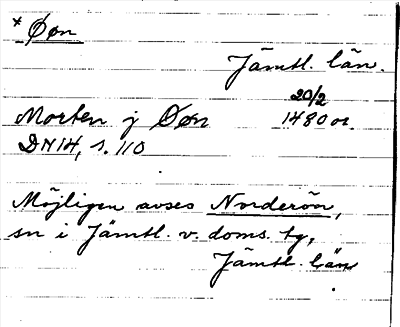 * Øøn
Jämtl. län.
20/2
Morten j Øøn 1480 or.
DN 14, s. 110
Möjligen avses Norderön,
sn i Jämtl. v. doms. tg,
Jämtl. län